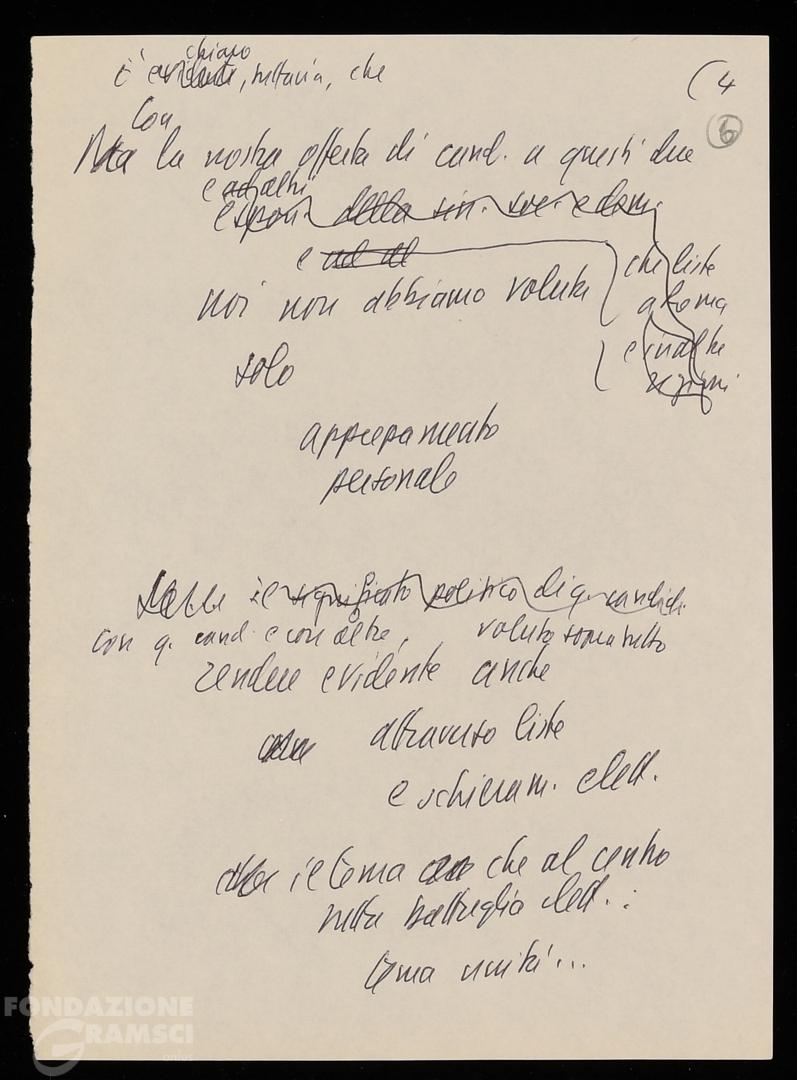 chiaro
È evidente, tuttavia, che
(4
6
Con
Ma la nostra offerta di cand. a questi due
e ad altri
espon. della sin. soc. e dem.
e ad al
che liste
noi non abbiamo voluto
a Roma
e in altre
solo
regioni
apprezzamento
personale
il significato politico di q. candid.
con q. cand. e con altre, voluto soprattutto
rendere evidente anche
attraverso liste
e schieram. elett.
il tema che al centro
nella battaglia elett.:
tema unità...
FONDAZIONE
GRAMSCI
onlus